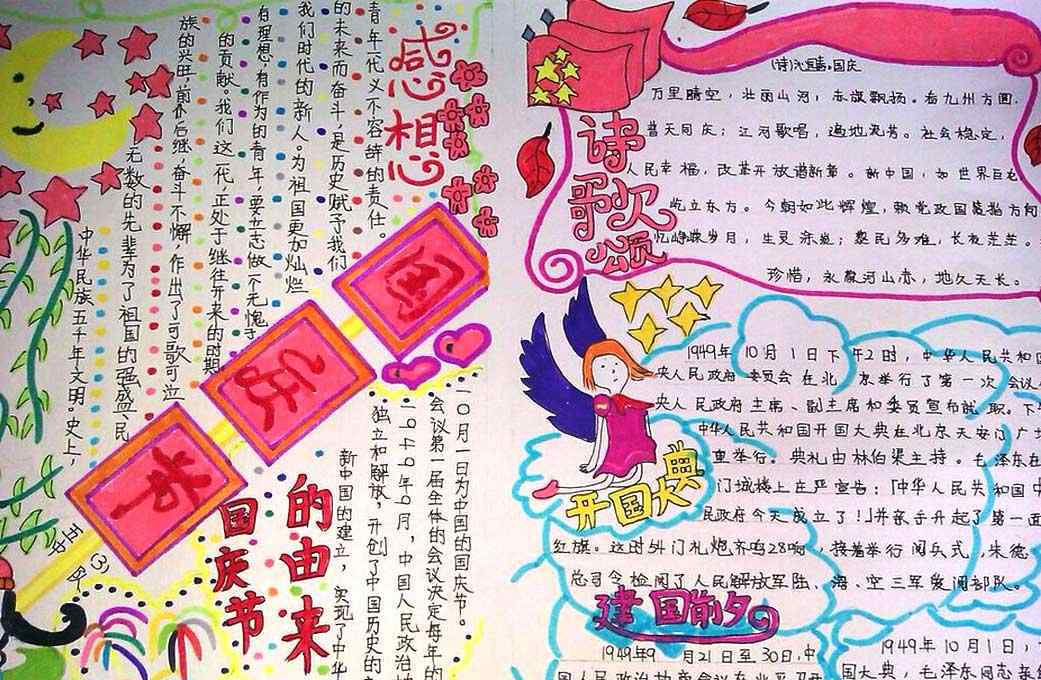 感想
中华民族五千年文明。史上，
无数的先辈为了祖国的强盛、民
族的兴旺，前仆后继，奋斗不懈，作出了可歌可泣
的贡献。我们这一代，正处于继往开来的时期
有理想，有作为的青年，要立志做一个无愧于
我们时代的新人。为祖国更加灿烂
的未来而奋斗，是历史赋予我们
青年一代义不容辞的责任。
国
庆
节
五(3)中队
国庆节
的由来
新中国的建立，实现了中华
独立和解放，开创了中国历史的
一九四九年九月，中国人民政治
会议第一届全体的会议决定每年的
一〇月一日为中国的国庆节。
诗歌颂
万里晴空，壮丽山河，赤旗飘扬。看九州方圆，
普天同庆；江河歌唱，遍地流芳。社会稳定，
人民幸福，改革开放谱新章。新中国，如世界巨龙
屹立东方。今朝如此辉煌，
忆峥嵘岁月，生灵涂炭；黎民多难，长夜茫茫。
珍惜，永葆河山赤，地久天长。
开国大典
1949年10月1日下午2时，中华人民共和国
央人民政府委员会在北京举行了第一次会议
央人民政府主席、副主席和委员宣布就职。下
中华人民共和国开国大典在北京天安门广场
重举行。典礼由林伯渠主持。毛泽东在
门城楼上庄严宣告：「中华人民共和国中
民政府今天成立了！」并亲手升起了第一面
红旗。这时外门礼炮齐鸣28响，接着举行阅兵式，朱德
总司令检阅了人民解放军陆、海、空三军受阅部队。
建国前夕
1949年9月21日至30日，中
1949年10月1日，
国大典，毛泽东同志亲